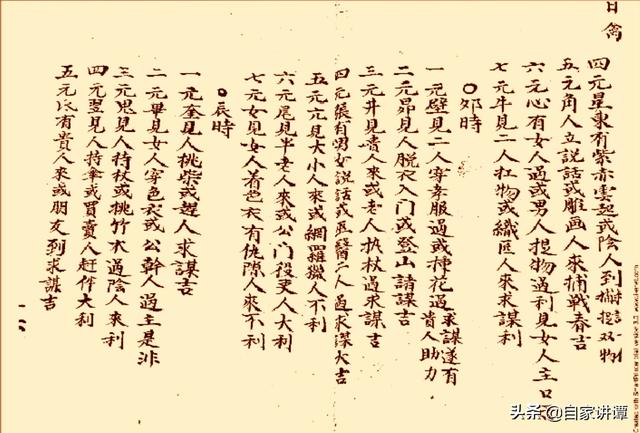 日禽
四元星東有紫赤雲起或陰人到
五元角人立說話或雕画人來捕戦春吉
六元心有女人過或男人提物過利見女人主口
七元牛見二人扛物或織匠人來求謀利
卯時
一元壁見二人穿孝服過或挿花過求謀遂有貴人助力
二元昴見人脱衣入门或登山請謀吉
三元井見貴人來或老人执杖過求謀吉
四元張有男女說話或巫醫二人過求謀大吉
五元亢見大小人來或網羅獵人不利
六元尾見半老人來或公门役吏人大利
七元女見女人着色衣有仇隙人來不利
辰時
一元奎見人挑柴或趕人求謀吉
二元畢見女人穿色衣或公幹人過主是非
三元鬼見人持杖或挑竹木過陰人來利
四元翌見人持傘或買賣人赶作大利
五元氐有貴人來或朋友到求謀吉
一六
头条@自家讲谭